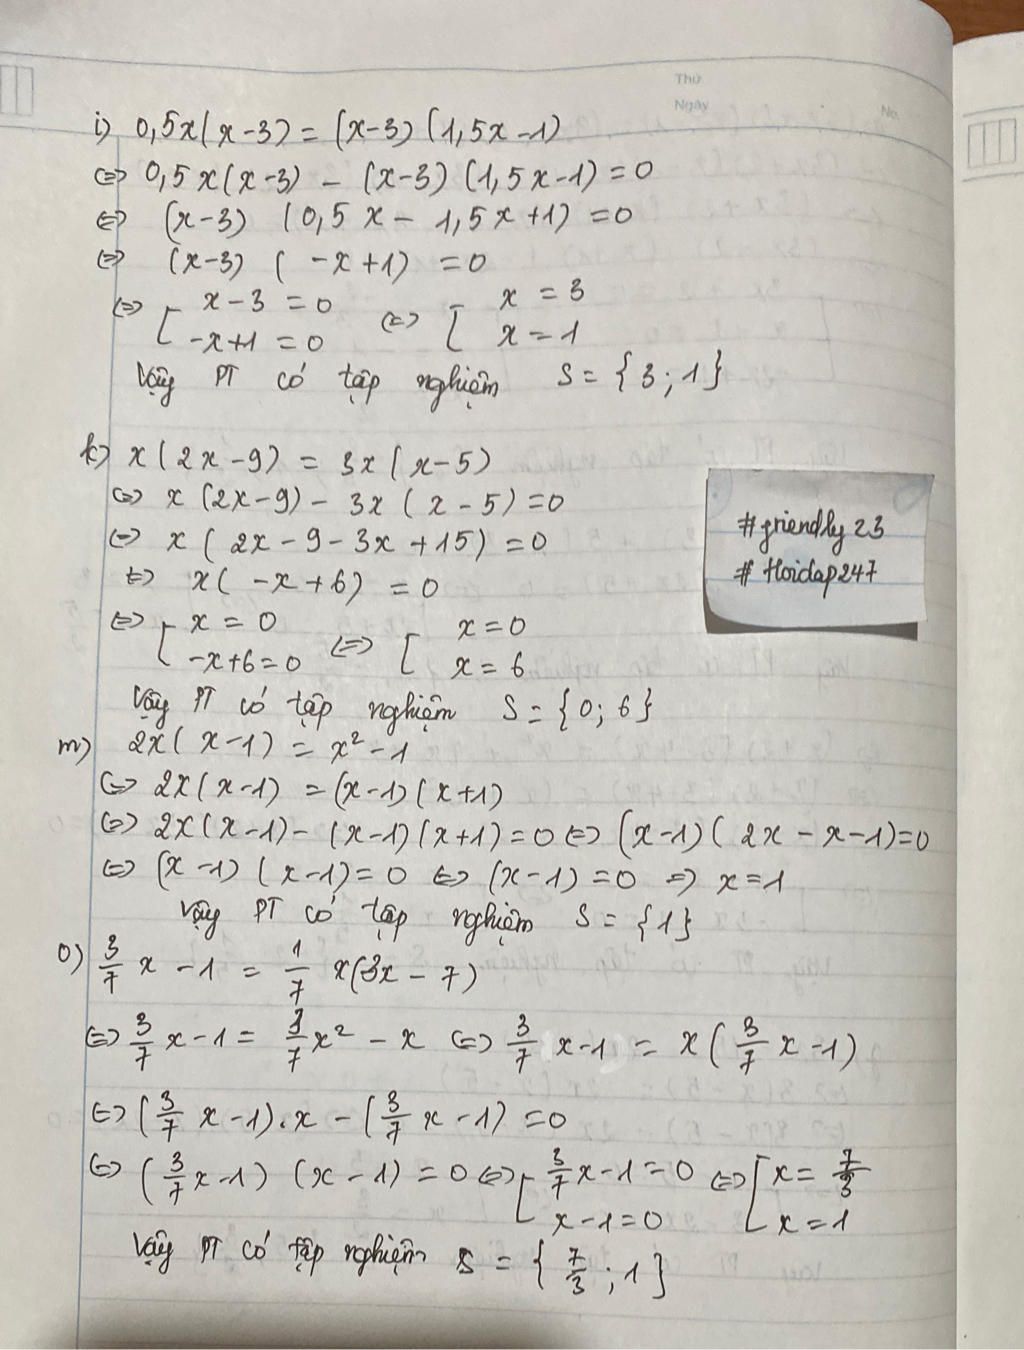 Thứ
Ngày
No.
i) 0,5x(x-3) = (x-3)(1,5x-1)
⇔ 0,5x(x-3) - (x-3)(1,5x-1) = 0
⇔ (x-3) (0,5x - 1,5x+1) = 0
⇔ (x-3) (-x+1) = 0
⇔ [ x-3 = 0 ⇔ [ x = 3
-x+1 = 0 x = 1
Vậy PT có tập nghiệm S = {3; 1}
k) x(2x-9) = 3x(x-5)
⇔ x(2x-9) - 3x(x-5) = 0
⇔ x(2x-9-3x+15) = 0
⇔ x(-x+6) = 0
⇔ [ x = 0 ⇔ [ x = 0
-x+6 = 0 x = 6
Vậy PT có tập nghiệm S = {0; 6}
#friendly23
# Hoidap247
m) 2x(x-1) = x² - 1
⇔ 2x(x-1) = (x-1)(x+1)
⇔ 2x(x-1) - (x-1)(x+1) = 0 ⇔ (x-1)(2x-x-1) = 0
⇔ (x-1)(x-1) = 0 ⇔ (x-1) = 0 ⇒ x = 1
Vậy PT có tập nghiệm S = {1}
o) 3/7 x - 1 = 1/7 x(3x-7)
⇔ 3/7 x - 1 = 3/7 x² - x ⇔ 3/7 x - 1 = x(3/7 x - 1)
⇔ (3/7 x - 1).x - (3/7 x - 1) = 0
⇔ (3/7 x - 1) (x-1) = 0 ⇔ [ 3/7 x - 1 = 0 ⇔ [ x = 7/3
x-1 = 0 x = 1
Vậy PT có tập nghiệm S = {7/3; 1}